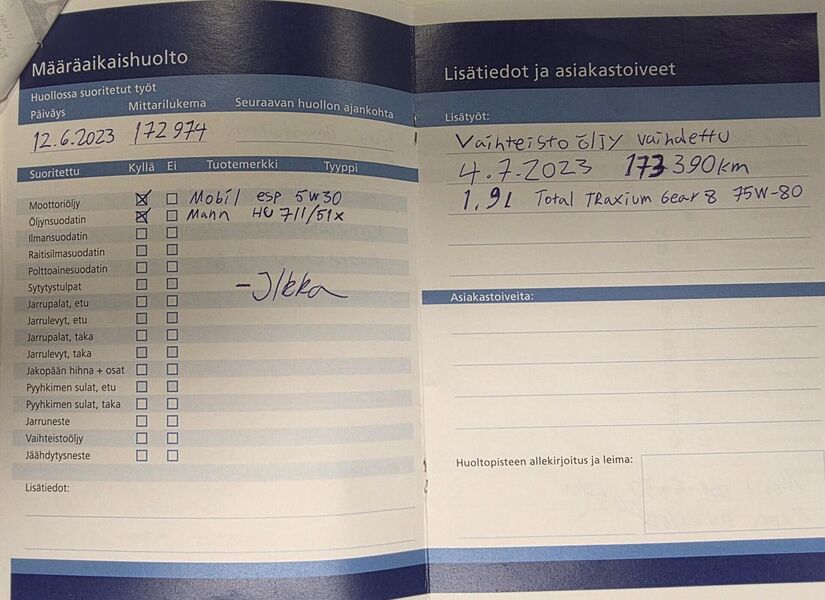 Määräaikaishuolto
Huollossa suoritetut työt
Päiväys Mittarilukema Seuraavan huollon ajankohta
12.6.2023 172 974
Suoritettu Kyllä Ei Tuotemerkki Tyyppi
Moottoriöljy Mobil esp 5w30
Öljynsuodatin Mann HU 711/51x
Ilmansuodatin
Raitisilmasuodatin
Polttoainesuodatin
Sytytystulpat
- Ilkka
Jarrupalat, etu
Jarrulevyt, etu
Jarrupalat, taka
Jarrulevyt, taka
Jakopään hihna + osat
Pyyhkimen sulat, etu
Pyyhkimen sulat, taka
Jarruneste
Vaihteistoöljy
Jäähdytysneste
Lisätiedot:
Lisätiedot ja asiakastoiveet
Lisätyöt:
Vaihteisto öljy vaihdettu
4.7.2023 173 390km
1,9l Total TRaxium Gear 8 75W-80
Asiakastoiveita:
Huoltopisteen allekirjoitus ja leima: